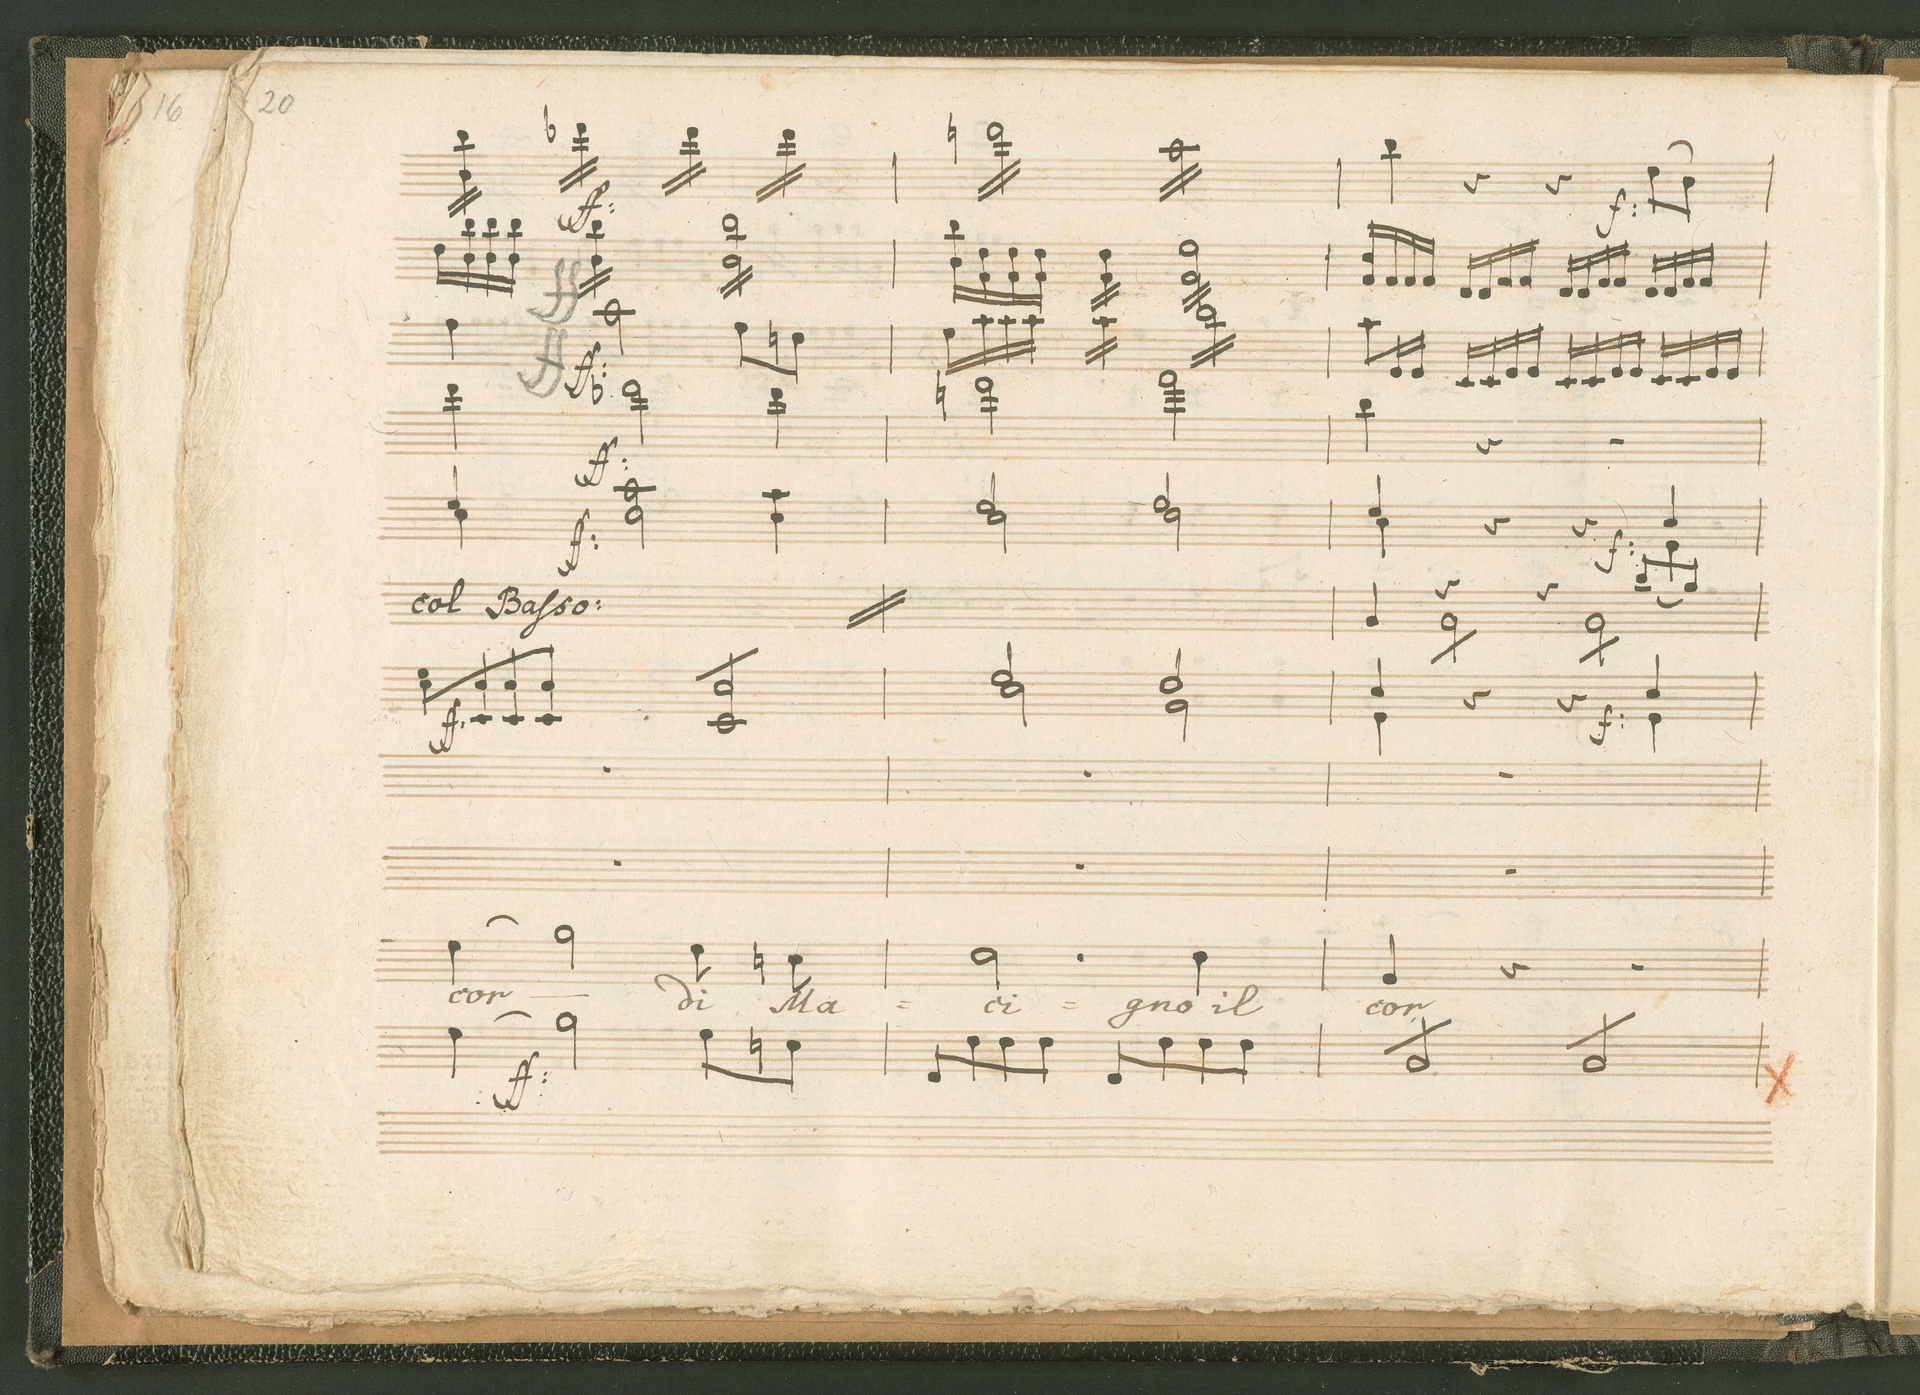 16 20
ff:
f:
ff
ff ff:
ff:
ff: f:
col Basso:
f: f:
cor — di Ma = ci = gno il cor
ff: